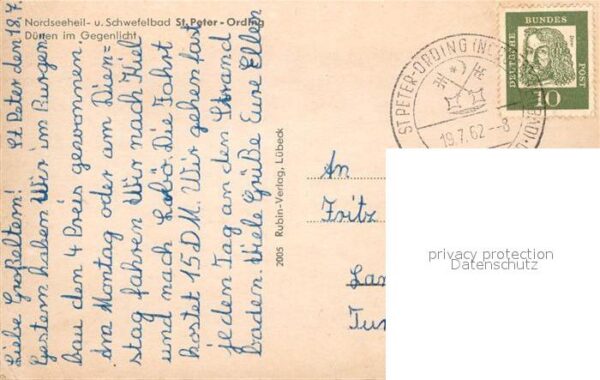 Nordseeheil- u. Schwefelbad St. Peter-Ording
Dünen im Gegenlicht
St. Peter den 18.7.
Liebe Großeltern!
Gestern haben Wir im Burgen-
bau den 4 Preis gewonnen.
Am Montag oder am Dien-
stag fahren Wir nach Kiel
und nach Labö. Die Fahrt
kostet 15 DM. Wir gehen fast
jeden Tag an den Strand
baden. Viele Grüße Eure Ellen
2005 Rubin-Verlag, Lübeck
ST. PETER-ORDING
19.7.62--8
DEUTSCHE BUNDES POST
Dürer
10
An
Fritz
privacy protection
Datenschutz